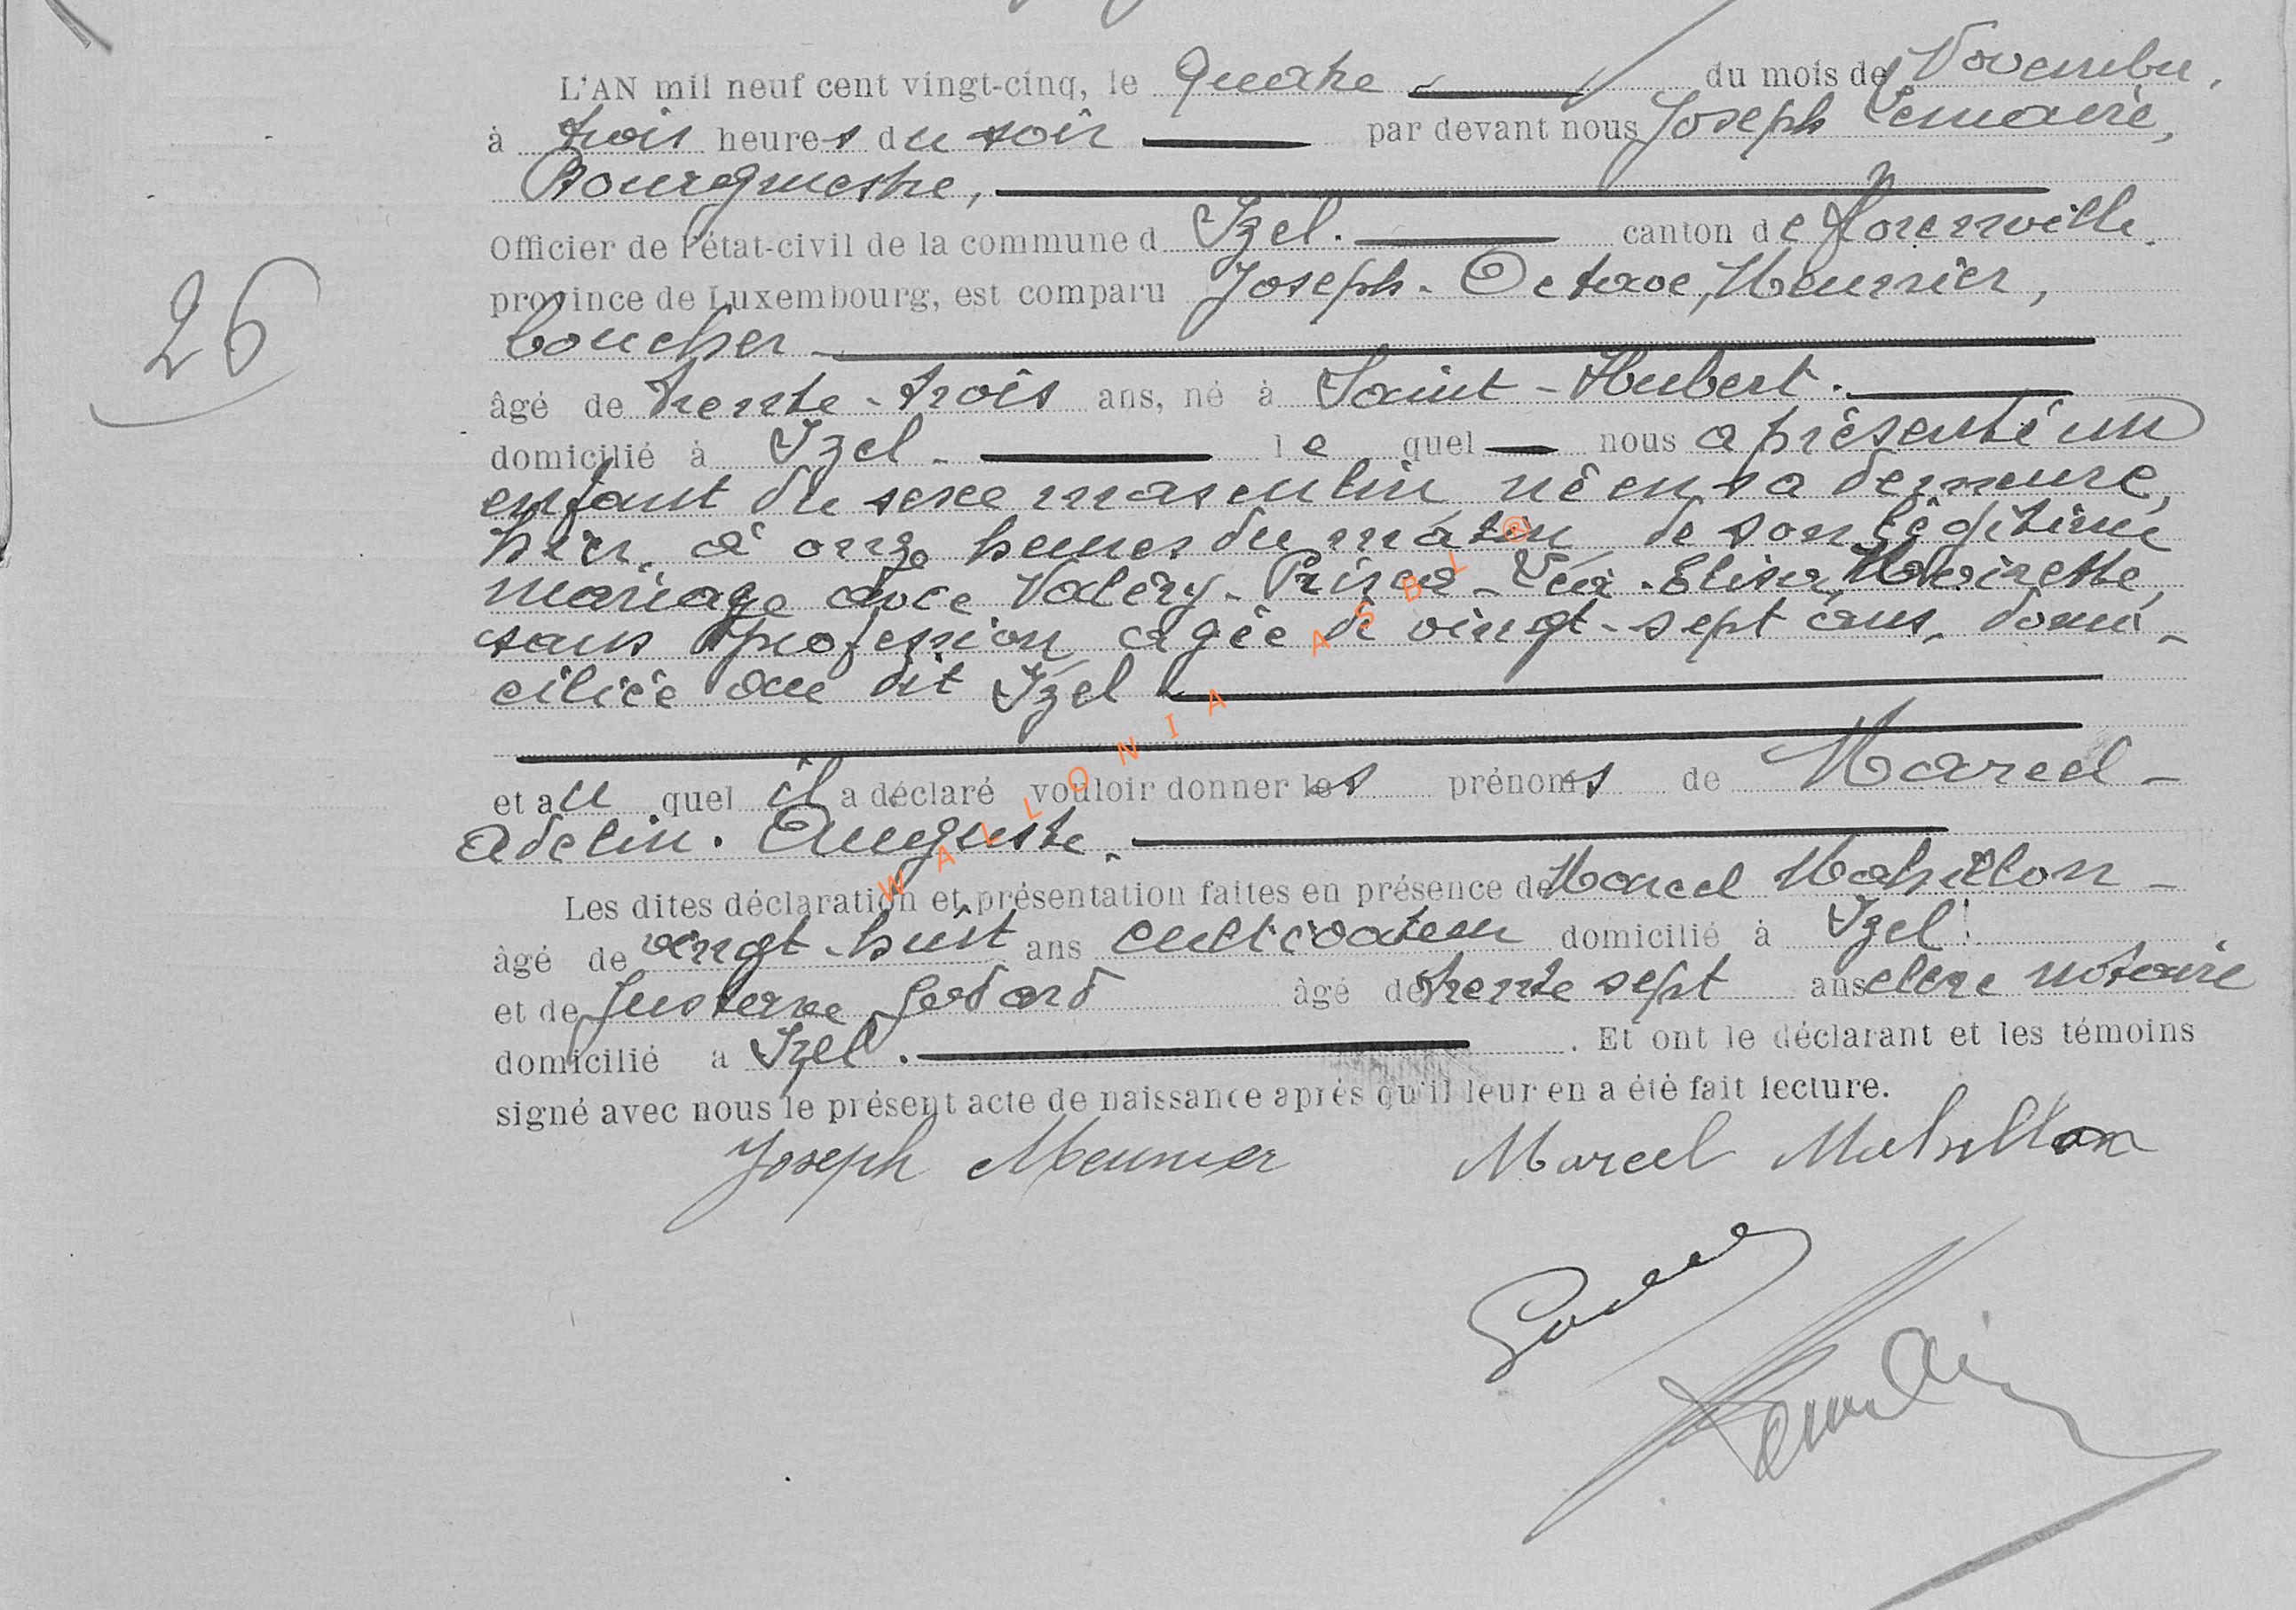 L'AN mil neuf cent vingt-cinq, le Quatre du mois de Novembre,
à trois heures du soir par devant nous Joseph Lemaire,
Bourgmestre,
Officier de l'état-civil de la commune d Izel. canton de Florenville.
province de Luxembourg, est comparu Joseph-Octave, Meunier,
boucher
26
âgé de trente-trois ans, né à Saint-Hubert.
domicilié à Izel. le quel nous a présenté un
enfant du sexe masculin né en sa demeure,
hier, à onze heures du matin de son légitime
mariage avec Valéry- - Elisa,
sans profession, agée de vingt-sept ans, domi-
ciliée au dit Izel
et au quel il a déclaré vouloir donner les prénoms de Marcel-
Adelin. Auguste.
Les dites déclaration et présentation faites en présence de Marcel Mahillon -
âgé de vingt-huit ans cultivateur domicilié à Izel
et de Gustave Godard âgé de trente sept ans clerc notaire
domicilié a Izel. . Et ont le déclarant et les témoins
signé avec nous le présent acte de naissance après qu'il leur en a été fait lecture.
Joseph Meunier Marcel Mahillon
WALLONIA ASBL ®